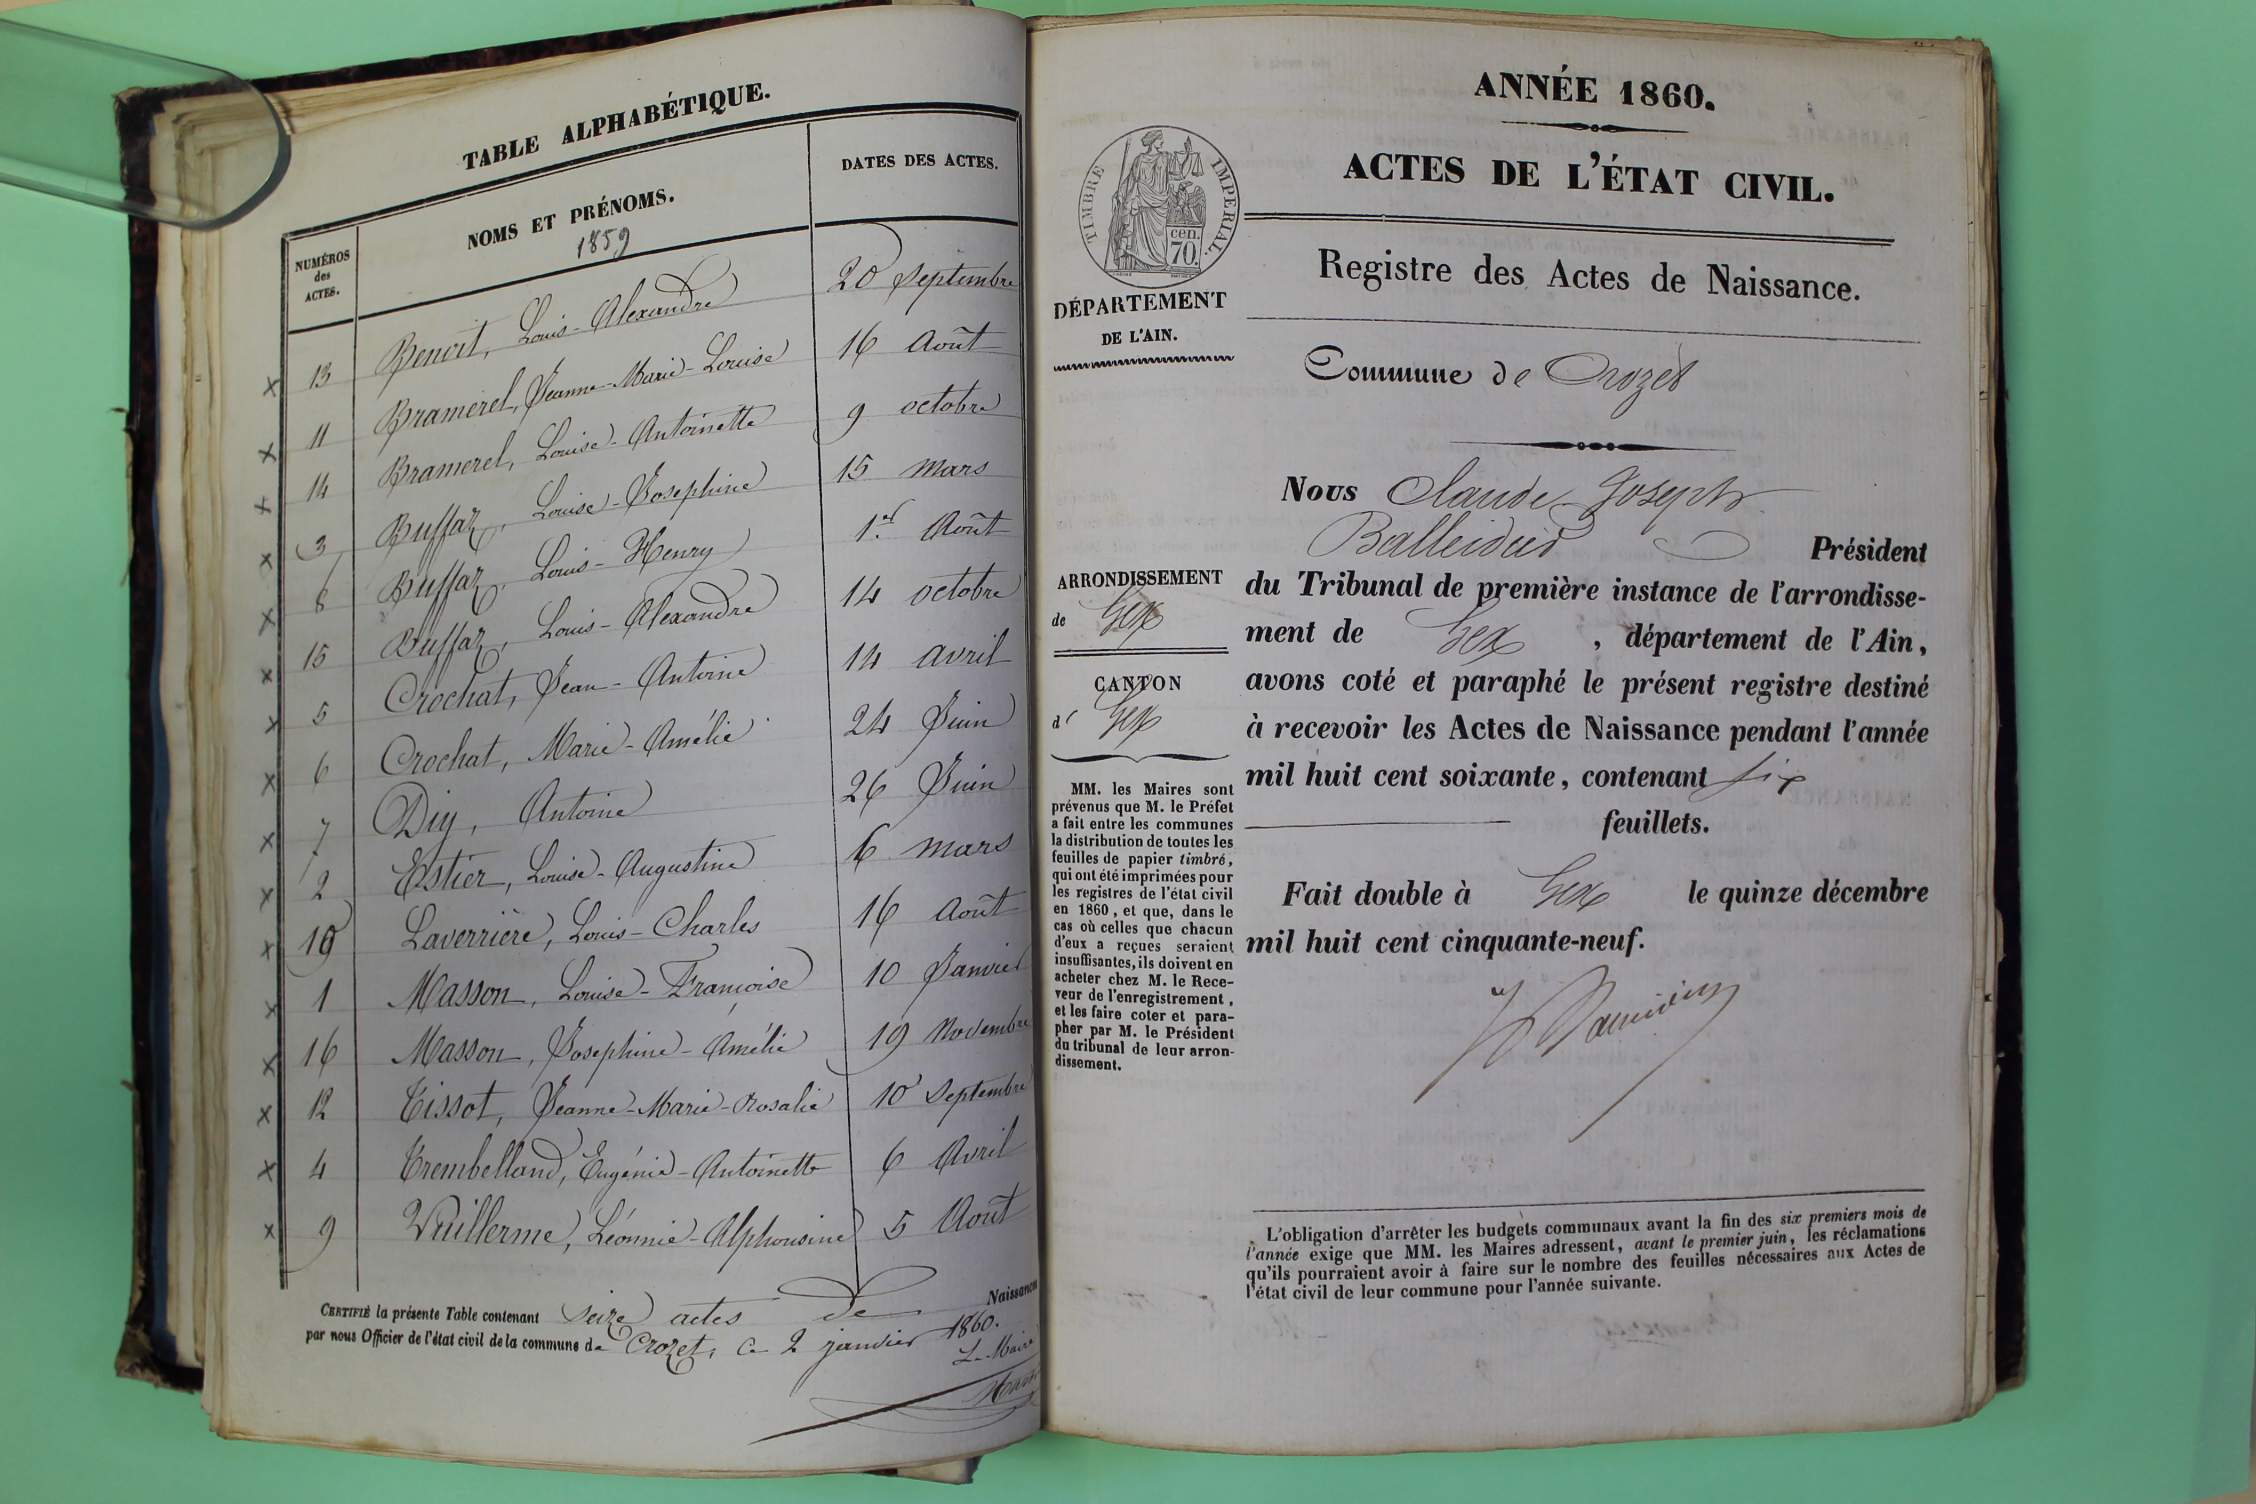 TABLE ALPHABÉTIQUE.
NUMÉROS
des
ACTES.
NOMS ET PRÉNOMS.
1859
DATES DES ACTES.
x 13 Benoit, Louis-Alexandre 20 Septembre
x 11 Bramerel, Jeanne-Marie-Louise 16 Août
x 14 Bramerel, Louise-Antoinette 9 octobre
x 3 Buffaz, Louise-Josephine 15 Mars
x 8 Buffaz, Louis-Henry 1.er Août
x 15 Buffaz, Louis-Alexandre 14 octobre
x 5 Crochat, Jean-Antoine 14 avril
x 6 Crochat, Marie-Amélie 24 Juin
x 7 Diy, Antoine 26 Juin
x 2 Estier, Louise-Augustine 6 mars
x 10 Laverrière, Louis-Charles 16 Août
x 1 Masson, Louise-Françoise 10 Janvier
x 16 Masson, Josephine-Amélie 19 Novembre
x 12 Tissot, Jeanne-Marie-Rosalie 10 Septembre
x 4 Trembelland, Eugénie-Antoinette 6 Avril
x 9 Vuillerme, Léonnie-Alphonsine 5 Août
CERTIFIÉ la présente Table contenant seize actes de Naissances
par nous Officier de l'état civil de la commune de Crozet, ce 2 janvier 1860.
Le Maire
ANNÉE 1860.
ACTES DE L'ÉTAT CIVIL.
TIMBRE IMPERIAL.
cen.
70.
Registre des Actes de Naissance.
DÉPARTEMENT
DE L'AIN.
Commune de Crozet
Nous Claude Joseph
Balleidier Président
du Tribunal de première instance de l'arrondisse-
ment de Gex, département de l'Ain,
avons coté et paraphé le présent registre destiné
à recevoir les Actes de Naissance pendant l'année
mil huit cent soixante, contenant six
feuillets.
Fait double à Gex le quinze décembre
mil huit cent cinquante-neuf.
ARRONDISSEMENT
de Gex
CANTON
d' Gex
MM. les Maires sont
prévenus que M. le Préfet
a fait entre les communes
la distribution de toutes les
feuilles de papier timbré,
qui ont été imprimées pour
les registres de l'état civil
en 1860, et que, dans le
cas où celles que chacun
d'eux a reçues seraient
insuffisantes, ils doivent en
acheter chez M. le Rece-
veur de l'enregistrement,
et les faire coter et para-
pher par M. le Président
du tribunal de leur arron-
dissement.
L'obligation d'arrêter les budgets communaux avant la fin des six premiers mois de
l'année exige que MM. les Maires adressent, avant le premier juin, les réclamations
qu'ils pourraient avoir à faire sur le nombre des feuilles nécessaires aux Actes de
l'état civil de leur commune pour l'année suivante.